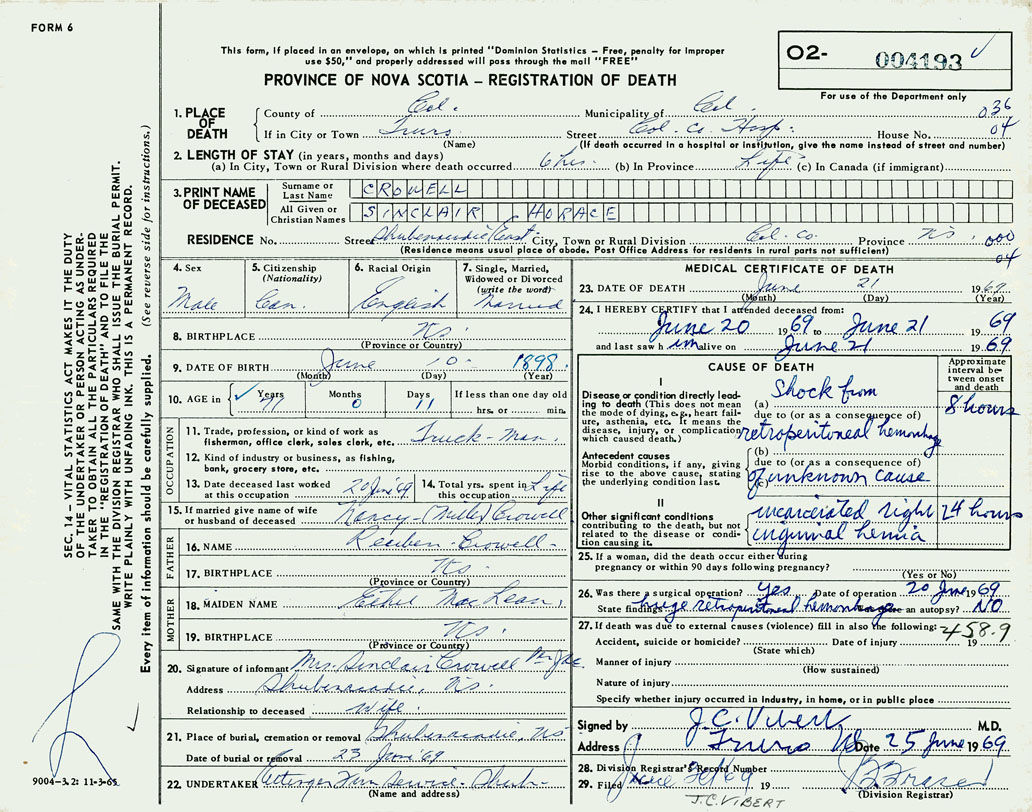 FORM 6
This form, if placed in an envelope, on which is printed "Dominion Statistics – Free, penalty for improper
use $50," and properly addressed will pass through the mail "FREE"
PROVINCE OF NOVA SCOTIA – REGISTRATION OF DEATH
O2- 004193
For use of the Department only
036
04
1. PLACE OF DEATH
County of Col. Municipality of Col
If in City or Town Truro Street Col. Co. Hosp. House No.
(Name) (If death occurred in a hospital or institution, give the name instead of street and number)
2. LENGTH OF STAY (in years, months and days)
(a) In City, Town or Rural Division where death occurred 6 hrs. (b) In Province Life (c) In Canada (if immigrant)
3. PRINT NAME OF DECEASED
Surname or Last Name CROWELL
All Given or Christian Names SINCLAIR HORACE
RESIDENCE No. Street Shubenacadie East City, Town or Rural Division Col. Co. Province NS
000
04
(Residence means usual place of abode. Post Office Address for residents in rural parts not sufficient)
4. Sex Male
5. Citizenship (Nationality) Can.
6. Racial Origin English
7. Single, Married, Widowed or Divorced (write the word) Married
8. BIRTHPLACE NS.
(Province or Country)
9. DATE OF BIRTH June 10 1898
(Month) (Day) (Year)
10. AGE in Years 71 Months 0 Days 11 If less than one day old
hrs. or min.
OCCUPATION
11. Trade, profession, or kind of work as
fisherman, office clerk, sales clerk, etc. Truck-Man.
12. Kind of industry or business, as fishing,
bank, grocery store, etc.
13. Date deceased last worked
at this occupation 20 June '69
14. Total yrs. spent in
this occupation Life
15. If married give name of wife
or husband of deceased Nancy (Miller) Crowell
FATHER
16. NAME Reuben Crowell
17. BIRTHPLACE NS.
(Province or Country)
MOTHER
18. MAIDEN NAME Ethel MacLean
19. BIRTHPLACE NS.
(Province or Country)
20. Signature of informant Mrs. Sinclair Crowell Per
Address Shubenacadie, NS.
Relationship to deceased Wife
21. Place of burial, cremation or removal Shubenacadie, NS
Date of burial or removal 23 June '69
22. UNDERTAKER Ettinger Fun. Service - Shub-
(Name and address)
MEDICAL CERTIFICATE OF DEATH
23. DATE OF DEATH June 21 1969
(Month) (Day) (Year)
24. I HEREBY CERTIFY that I attended deceased from:
June 20 1969 to June 21 1969
and last saw him alive on June 21 1969
CAUSE OF DEATH
Approximate interval between onset and death
I
Disease or condition directly leading to death (This does not mean the mode of dying, e.g., heart failure, asthenia, etc. It means the disease, injury, or complication which caused death.)
(a) Shock from 8 hours
due to (or as a consequence of)
retroperitoneal hemorrhage
Antecedent causes
Morbid conditions, if any, giving rise to the above cause, stating the underlying condition last.
(b)
due to (or as a consequence of)
(c) of unknown cause
II
Other significant conditions
contributing to the death, but not related to the disease or condition causing it.
incarcerated right 24 hours
inguinal hernia
25. If a woman, did the death occur either during
pregnancy or within 90 days following pregnancy?
(Yes or No)
26. Was there surgical operation? Yes Date of operation 20 June 1969
State findings huge retroperitoneal hemorrhage an autopsy? NO
27. If death was due to external causes (violence) fill in also the following:
458.9
Accident, suicide or homicide? Date of injury 19
(State which)
Manner of injury
(How sustained)
Nature of injury
Specify whether injury occurred in industry, in home, or in public place
Signed by J.C. Vibert M.D.
Address Truro NS Date 25 June 1969
28. Division Registrar's Record Number
29. Filed June 19
(Division Registrar)
J.C. VIBERT
SEC. 14 – VITAL STATISTICS ACT MAKES IT THE DUTY
OF THE UNDERTAKER OR PERSON ACTING AS UNDER-
TAKER TO OBTAIN ALL THE PARTICULARS REQUIRED
IN THE "REGISTRATION OF DEATH" AND TO FILE THE
SAME WITH THE DIVISION REGISTRAR WHO SHALL ISSUE THE BURIAL PERMIT.
WRITE PLAINLY WITH UNFADING INK. THIS IS A PERMANENT RECORD.
Every item of information should be carefully supplied. (See reverse side for instructions.)
9004-3.2: 11-3-65